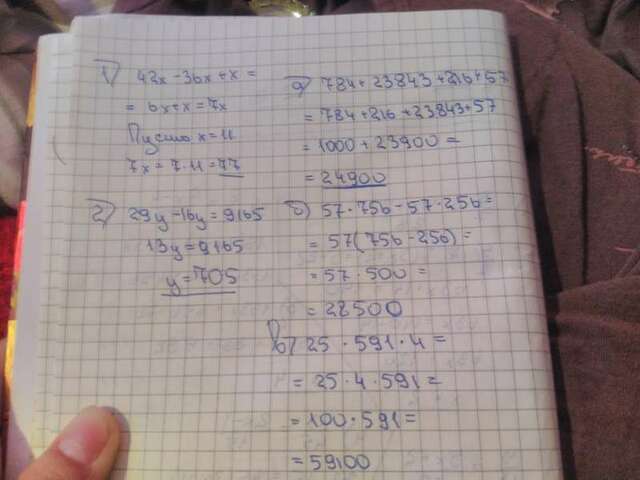 1) 42x - 36x + x =
= 6x + x = 7x
Пусть x = 11
7x = 7 · 11 = 77
2) 29y - 16y = 9165
13y = 9165
y = 705
a) 784 + 23843 + 216 + 57
= 784 + 216 + 23843 + 57
= 1000 + 23900 =
= 24900
б) 57 · 756 - 57 · 256 =
= 57(756 - 256) =
= 57 · 500 =
= 28500
в) 25 · 591 · 4 =
= 25 · 4 · 591 =
= 100 · 591 =
= 59100